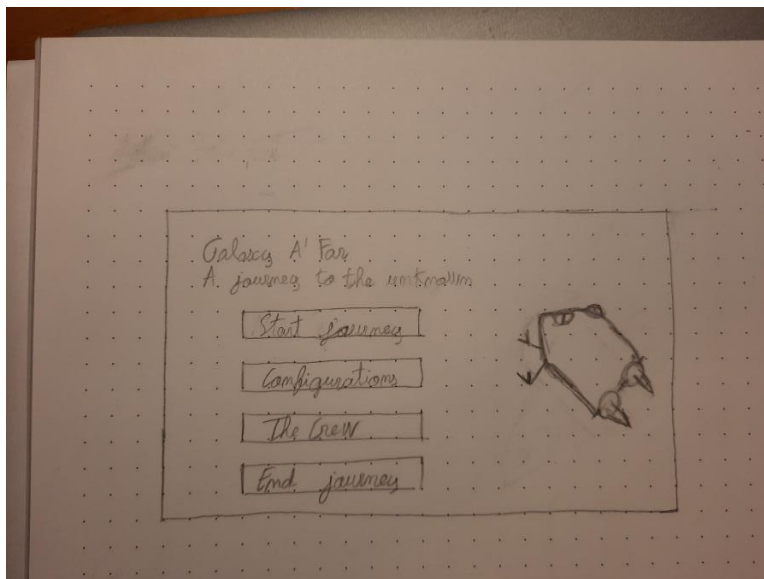 Galaxy A' Far
A journey to the unknown
Start journey
Configurations
The Crew
End journey